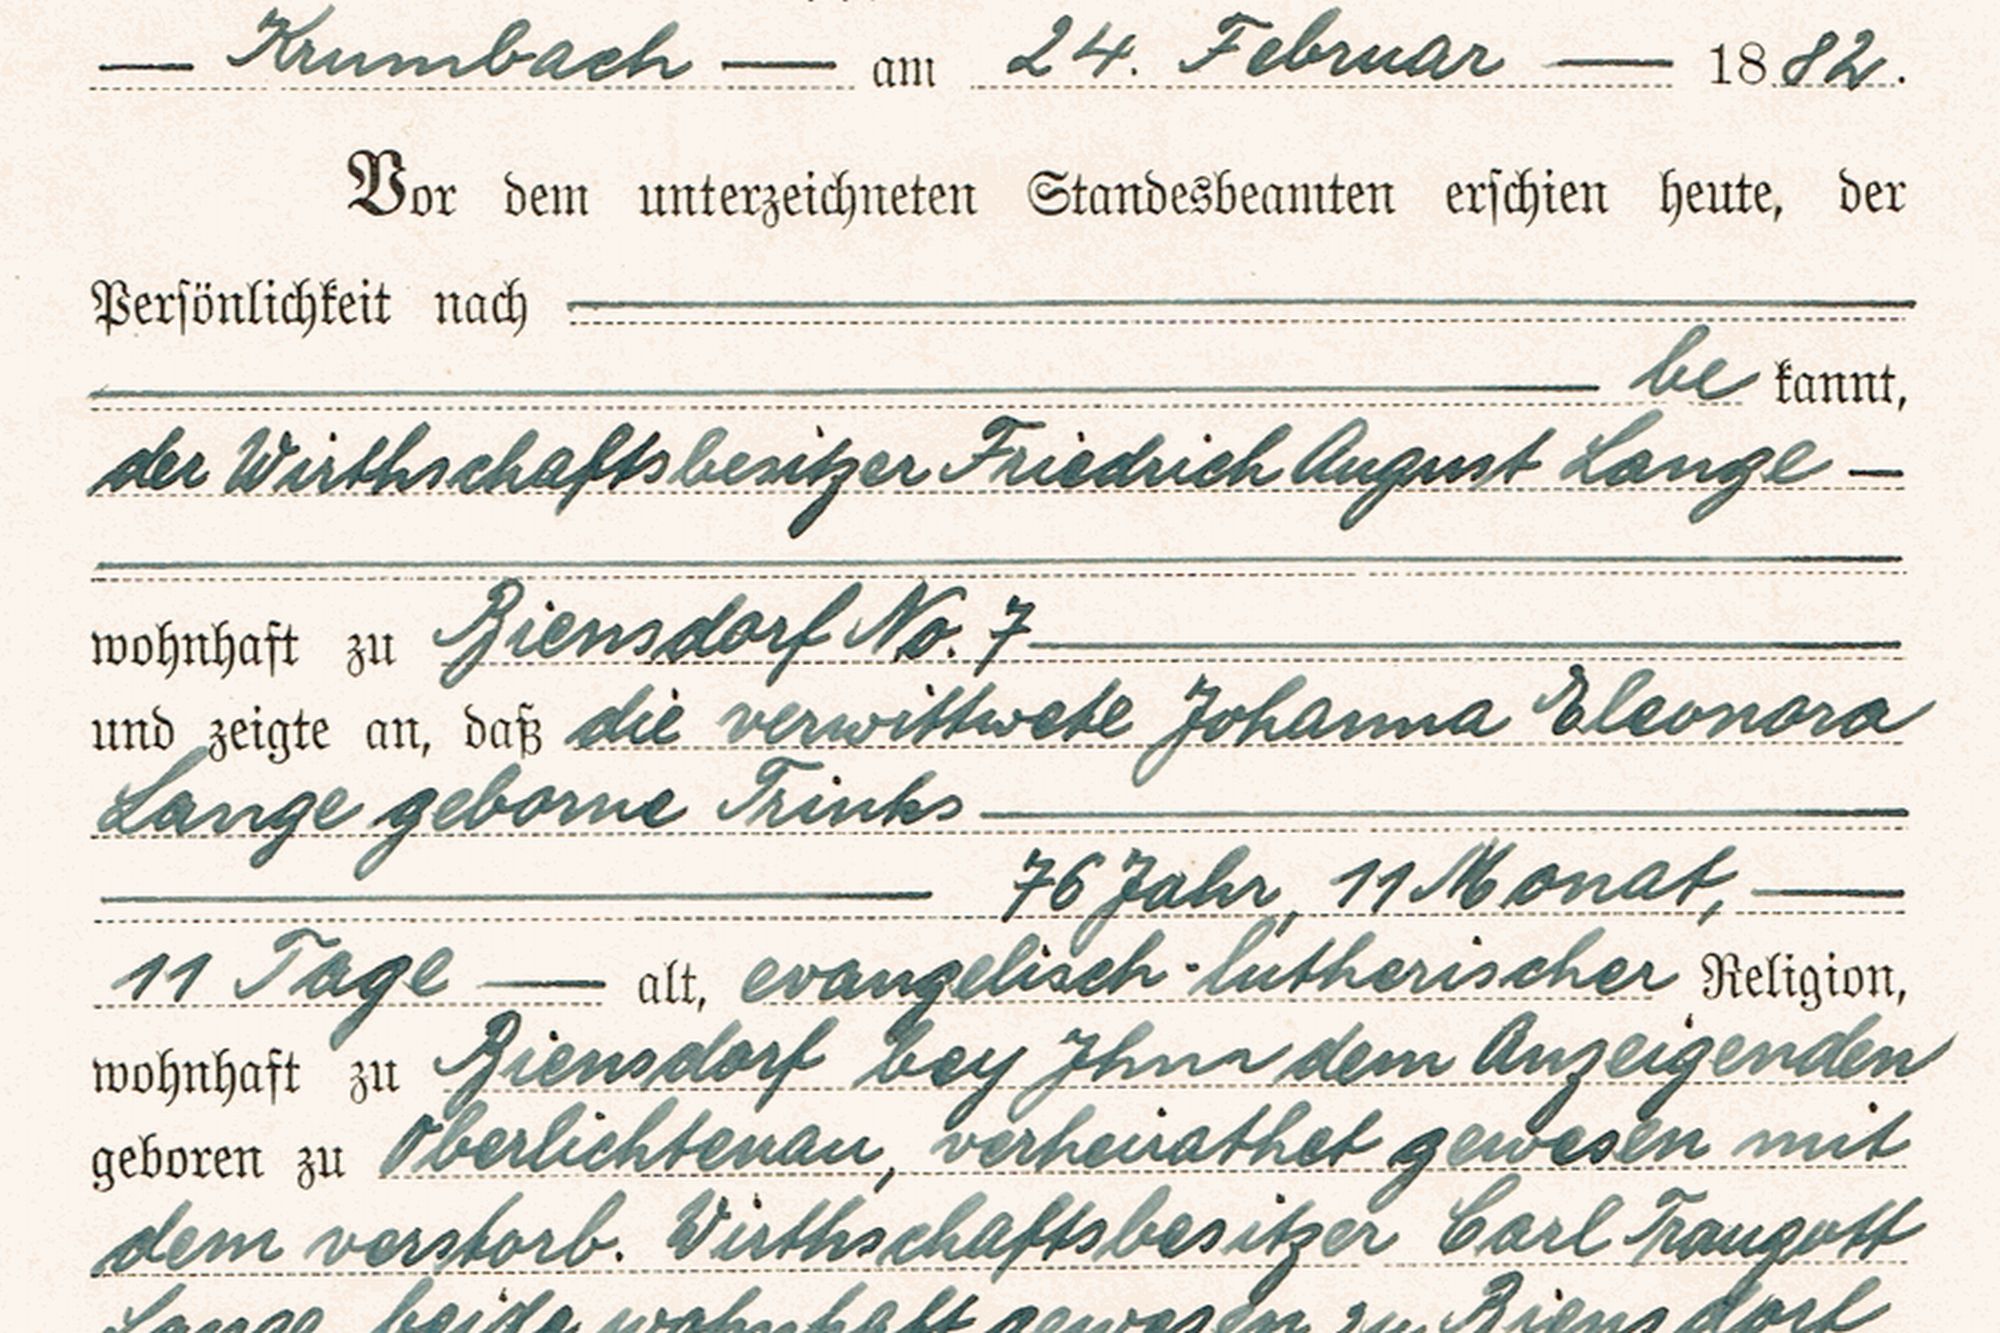 — Krumbach — am 24. Februar — 1882.
Vor dem unterzeichneten Standesbeamten erschien heute, der
Persönlichkeit nach
be kannt,
der Wirthschaftsbesitzer Friedrich August Lange —
wohnhaft zu Biensdorf No. 7
und zeigte an, daß die verwittwete Johanna Eleonora
Lange geborne Trinks
76 Jahr, 11 Monat, —
11 Tage — alt, evangelisch-lutherischer Religion,
wohnhaft zu Biensdorf bey Ihm dem Anzeigenden
geboren zu Oberlichtenau, verheirathet gewesen mit
dem verstorb. Wirthschaftsbesitzer Carl Traugott
Lange, beide wohnhaft gewesen zu Biensdorf